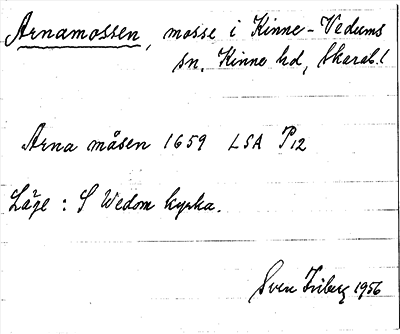 Arnamossen, mosse i Kinne-Vedums
sn, Kinne hd, Skarab.l
Arna måsen 1659 LSA P12
Läge : S Wedom kyrka.
Sven Friberg 1956